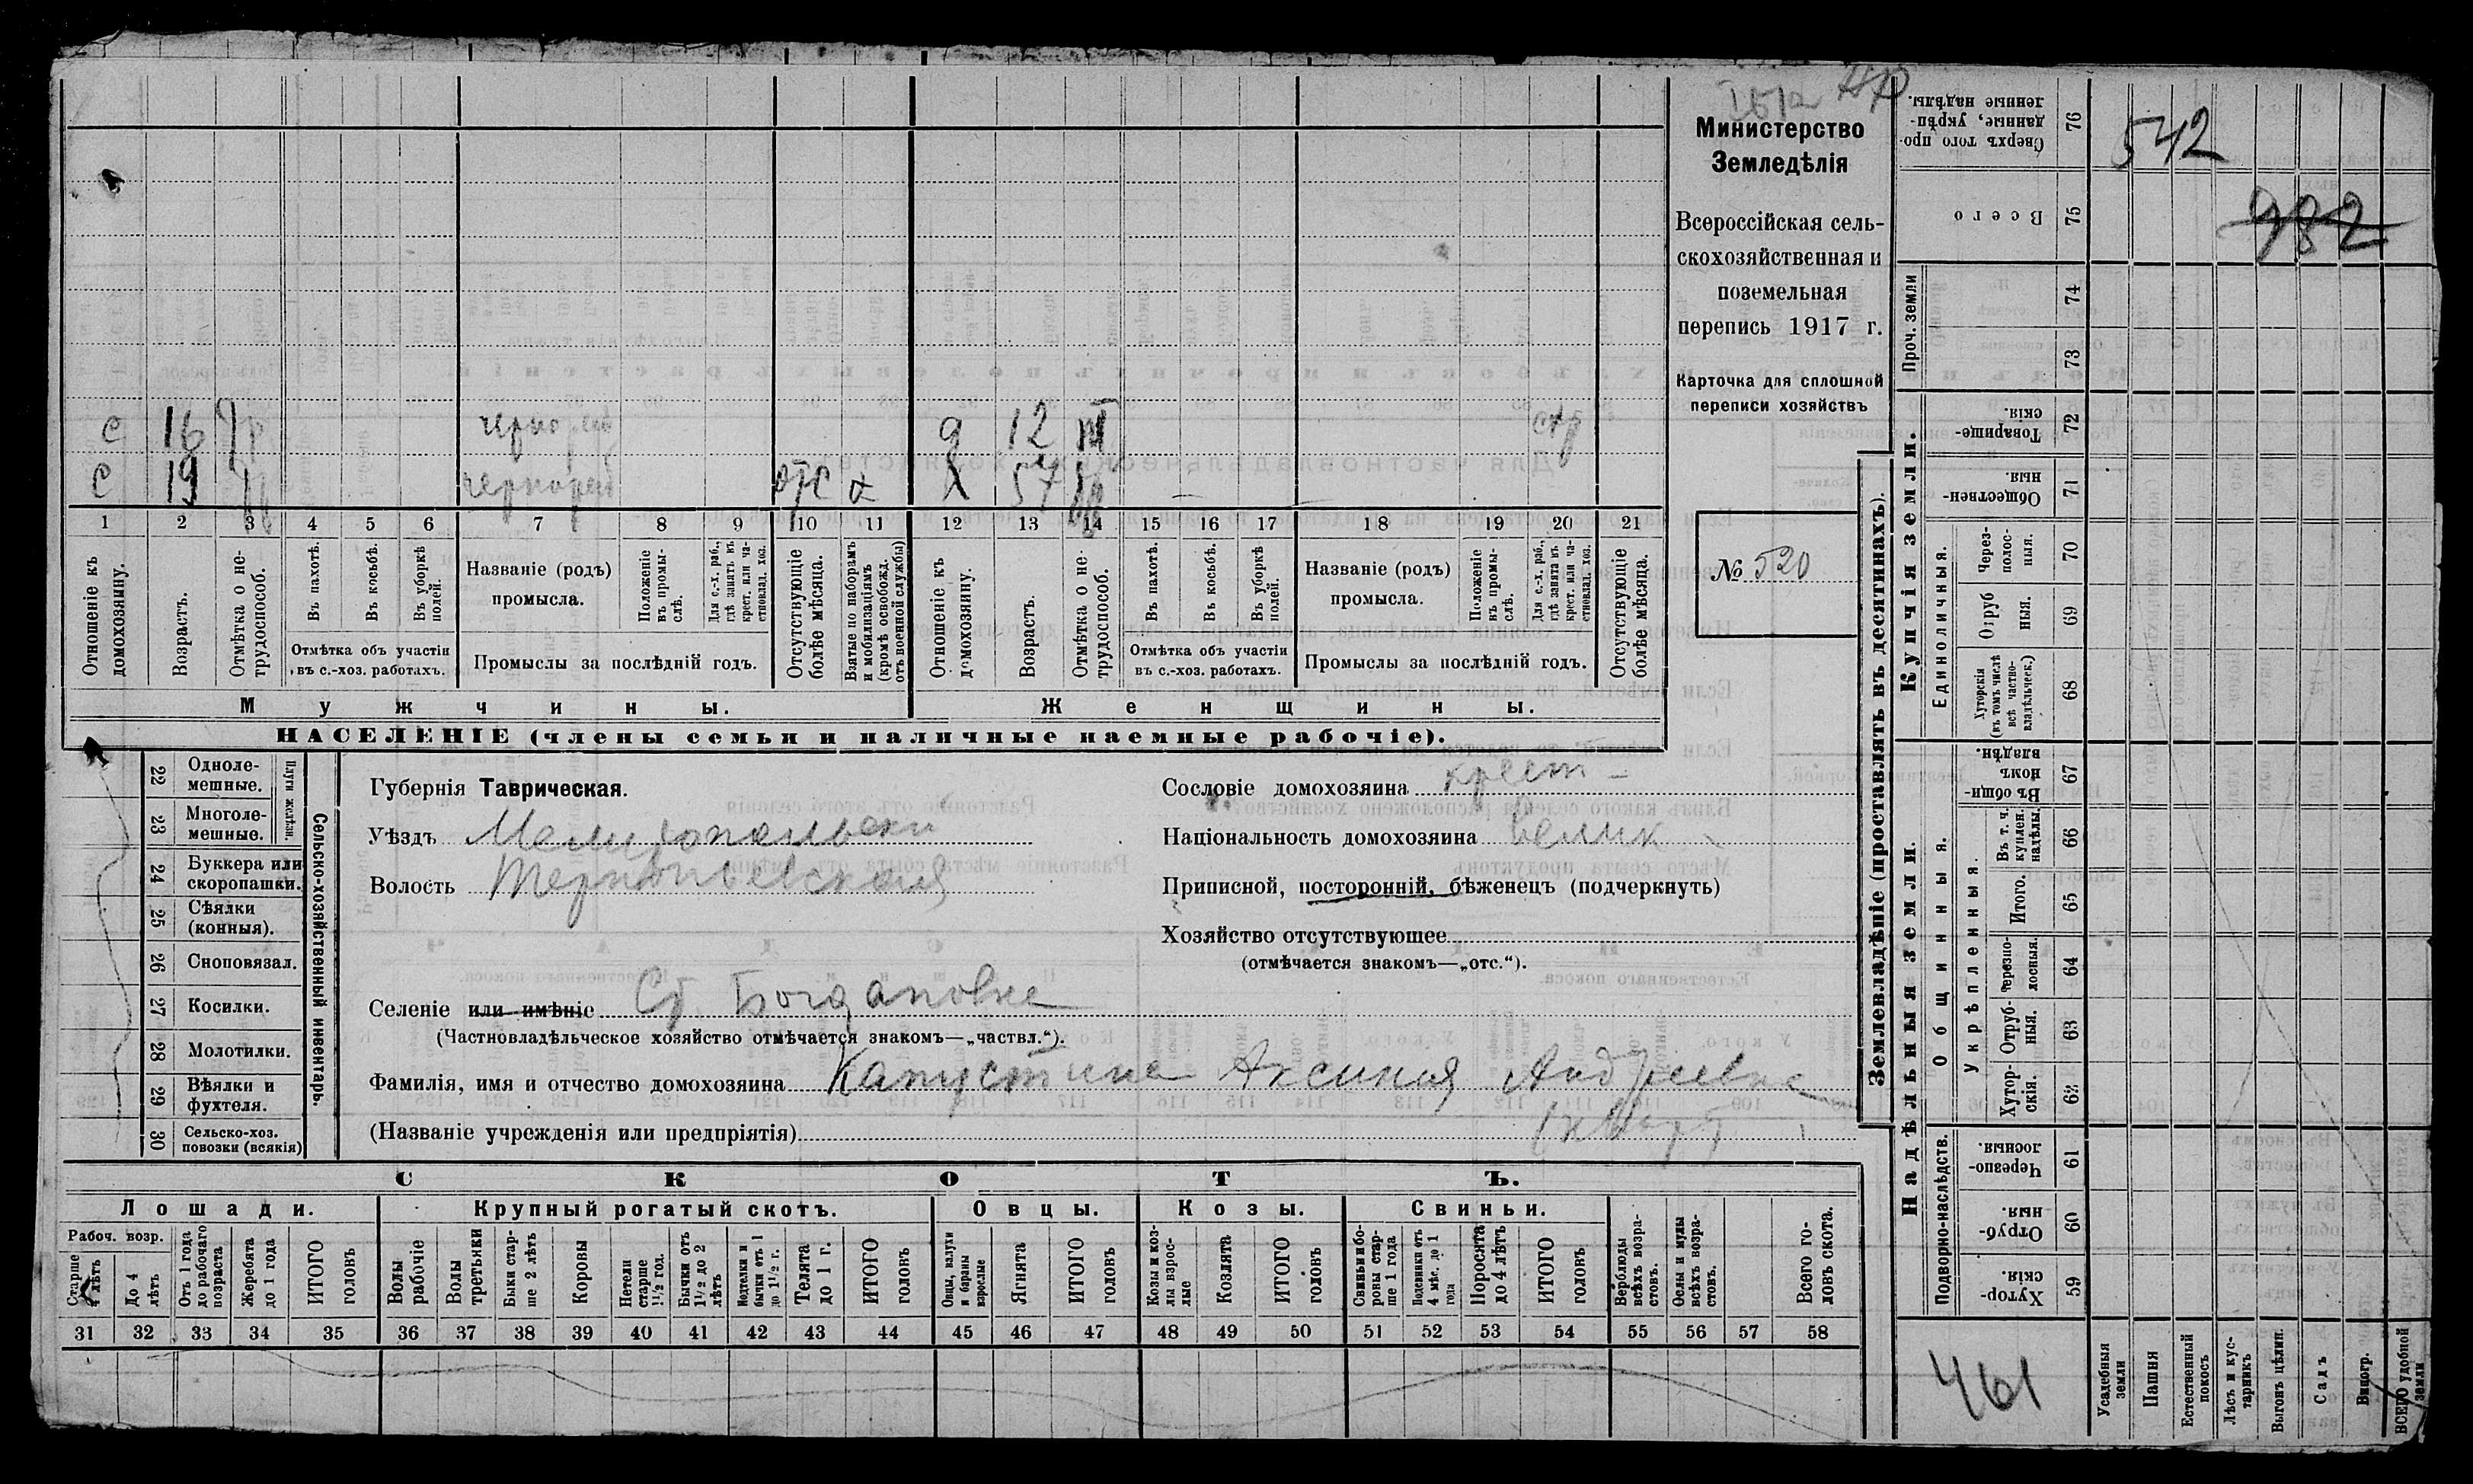 542
982
Министерство
Земледѣлія
Всероссійская сель-
скохозяйственная и
поземельная
перепись 1917 г.
Карточка для сплошной
переписи хозяйствъ
№ 520
с 16 д 12
с 19 отс х 57
1 2 3 4 5 6 7 8 9 10 11 12 13 14 15 16 17 18 19 20 21
Отношеніе къ домохозяину.
Возрастъ.
Отмѣтка о не-трудоспособ.
Въ пахотѣ.
Въ косьбѣ.
Въ уборкѣ полей.
Отмѣтка объ участіи
въ с.-хоз. работахъ.
Названіе (родъ)
промысла.
Положеніе въ промы-слѣ.
Для с.-х. раб., гдѣ занятъ въ крест. или ча-стновлад. хоз.
Промыслы за послѣдній годъ.
Отсутствующіе болѣе мѣсяца.
Взятые по наборамъ и мобилизаціямъ (кромѣ освобожд. отъ военной службы)
Отношеніе къ домохозяину.
Возрастъ.
Отмѣтка о не-трудоспособ.
Въ пахотѣ.
Въ косьбѣ.
Въ уборкѣ полей.
Отмѣтка объ участіи
въ с.-хоз. работахъ.
Названіе (родъ)
промысла.
Положеніе въ промы-слѣ.
Для с.-х. раб., гдѣ занята въ крест. или ча-стновлад. хоз.
Промыслы за послѣдній годъ.
Отсутствующіе болѣе мѣсяца.
Мужчины.
Женщины.
НАСЕЛЕНІЕ (члены семьи и наличные наемные рабочіе).
22 Одноле-мешные.
23 Многоле-мешные.
Плуги желѣзн.
24 Буккера или скоропашки.
25 Сѣялки (конныя).
26 Сноповязал.
27 Косилки.
28 Молотилки.
29 Вѣялки и фухтеля.
30 Сельско-хоз. повозки (всякія)
Сельско-хозяйственный инвентарь.
Губернія Таврическая.
Уѣздъ Мелитопольски
Волость
Селеніе или имѣніе Ст. Богдановка
(Частновладѣльческое хозяйство отмѣчается знакомъ—„частвл.“).
Фамилія, имя и отчество домохозяина Капустина Аксинья Андреевна
(Названіе учрежденія или предпріятія)
Сословіе домохозяина крест
Національность домохозяина велик
Приписной, посторонній, бѣженецъ (подчеркнуть)
Хозяйство отсутствующее
(отмѣчается знакомъ—„отс.“).
СКОТЪ.
Лошади. Крупный рогатый скотъ. Овцы. Козы. Свиньи.
Рабоч. возр.
Старше 4 лѣтъ
До 4 лѣтъ
Отъ 1 года до рабочаго возраста
Жеребята до 1 года
ИТОГО головъ
Волы рабочіе
Волы третьяки
Быки стар-ше 2 лѣтъ
Коровы
Нетели старше 1½ год.
Бычки отъ 1½ до 2 лѣтъ
Нетелки и бычки отъ 1 до 1½ г.
Телята до 1 г.
ИТОГО головъ
Овцы, валухи и бараны взрослые
Ягнята
ИТОГО головъ
Козы и коз-лы взрос-лые
Козлята
ИТОГО головъ
Свиньи и бо-ровы стар-ше 1 года
Подсвинки отъ 4 мѣс. до 1 года
Поросята до 4 лѣтъ
ИТОГО головъ
Верблюды всѣхъ возра-стовъ.
Ослы и мулы всѣхъ возра-стовъ.
Всего го-ловъ скота.
31 32 33 34 35 36 37 38 39 40 41 42 43 44 45 46 47 48 49 50 51 52 53 54 55 56 57 58
Землевладѣніе (проставлять въ десятинахъ).
Купчія земли.
Сверхъ того про-данные, укрѣп-ленные надѣлы. 76
Всего 75
Проч. земли 74 73
Товарище-скія. 72
Обществен-ныя. 71
Единоличныя.
Через-полос-ныя. 70
Отруб-ныя. 69
Хуторскія (въ томъ числѣ всѣ частно-владѣльческ.) 68
Надѣльныя земли.
Общинныя.
Въ общи-номъ владѣн. 67
Укрѣпленныя.
Въ т. ч. куплен. надѣлы. 66
Итого. 65
Черезпо-лосныя. 64
Отруб-ныя. 63
Хутор-скія. 62
Подворно-наслѣдств.
Черезпо-лосныя. 61
Отруб-ныя. 60
Хутор-скія. 59
461
Усадебныя земли
Пашня
Естественный покосъ
Лѣсъ и кус-тарникъ
Выгонъ цѣлин.
Садъ
Виногр.
ВСЕГО удобной земли